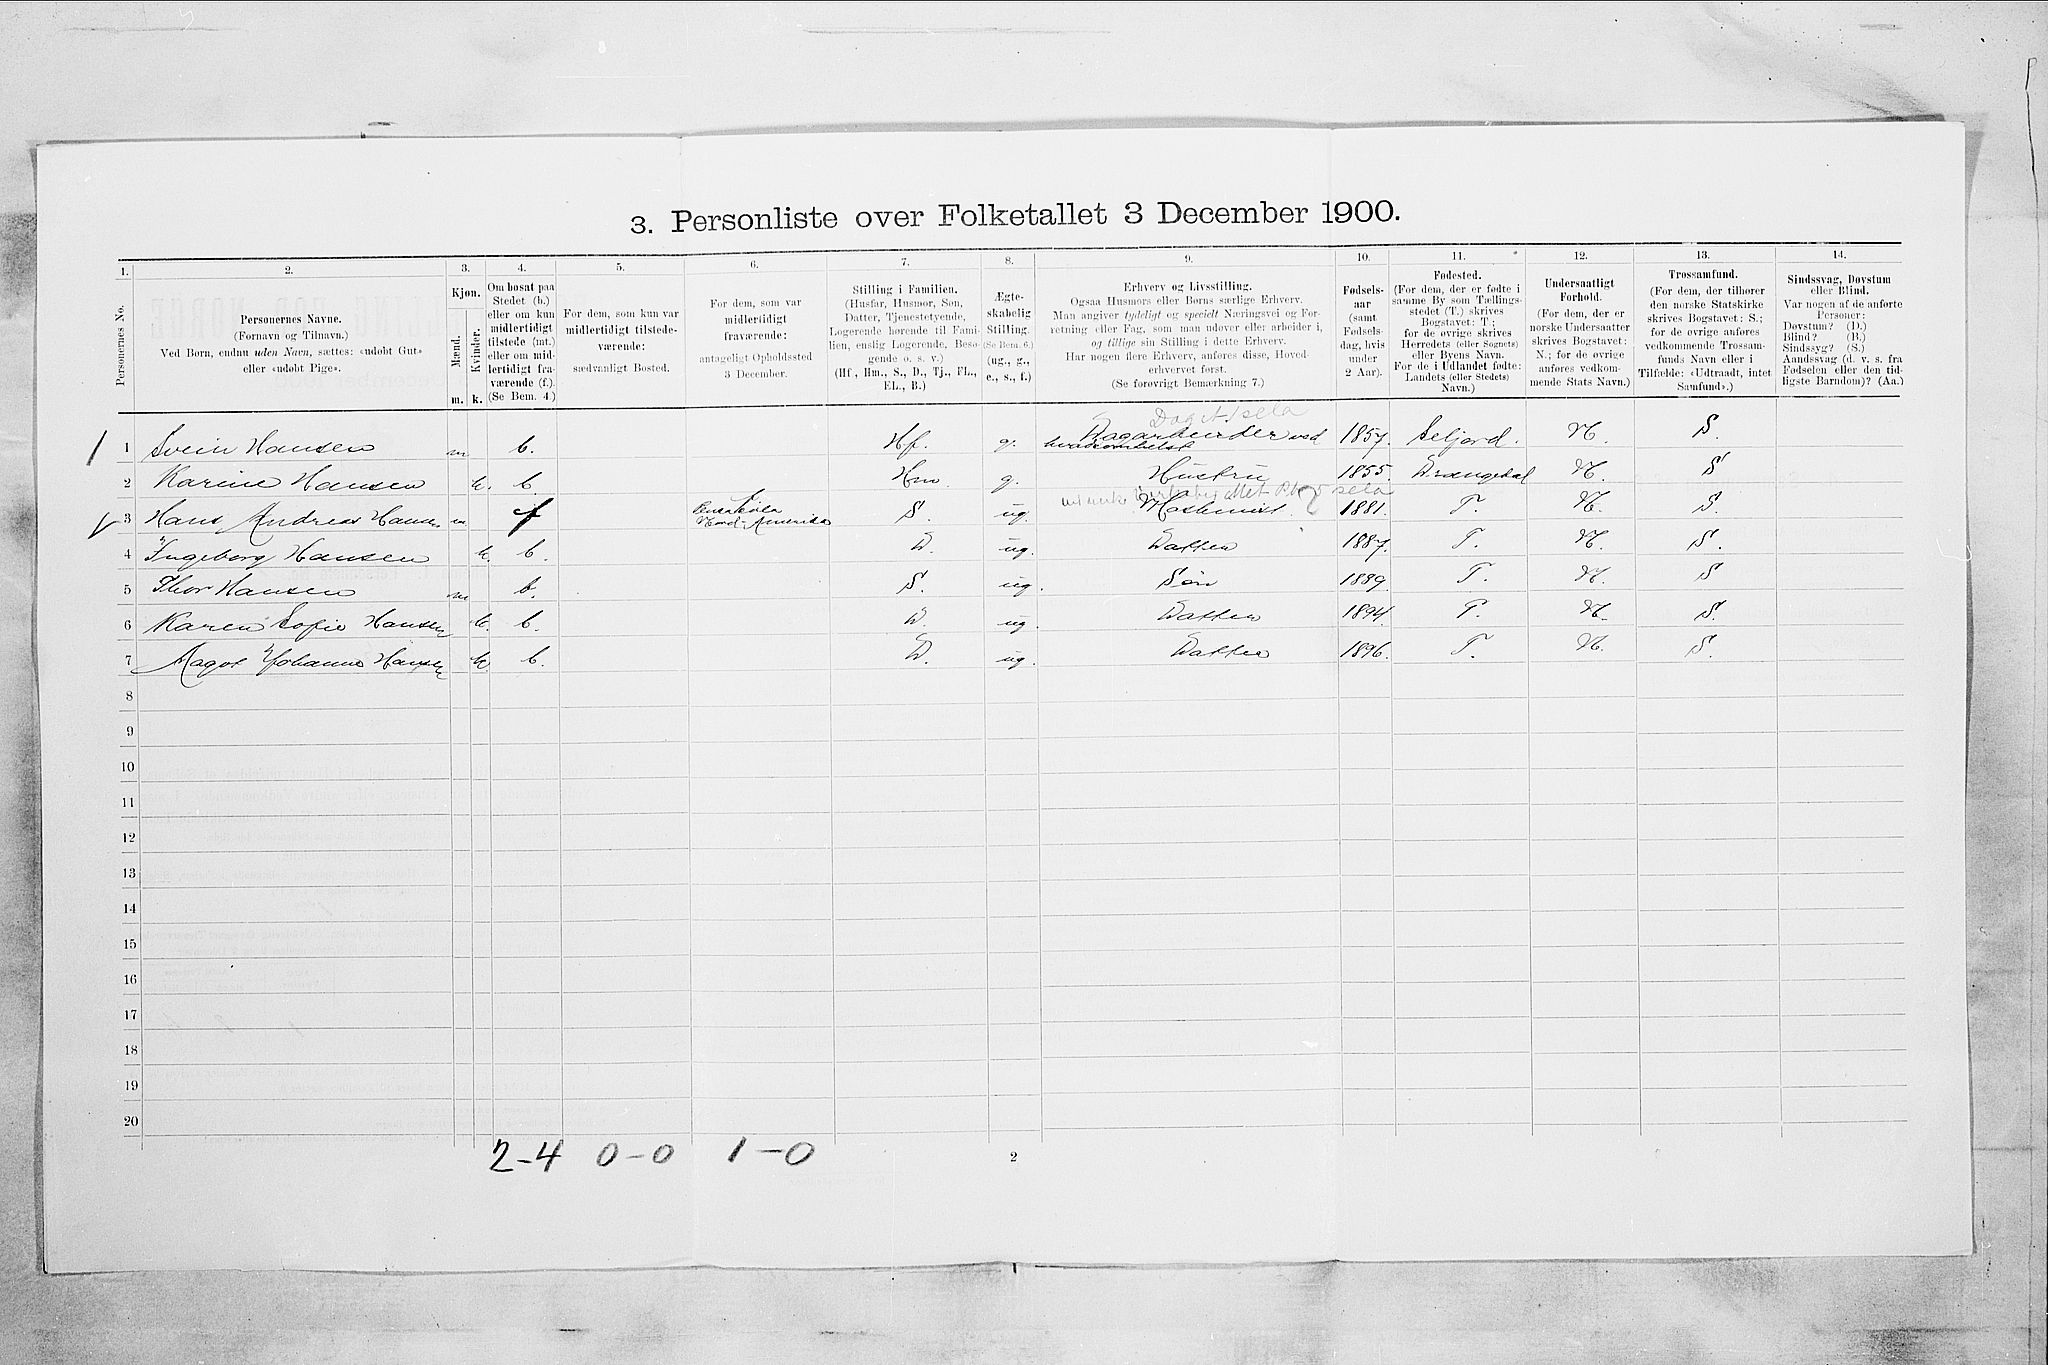 3. Personliste over Folketallet 3 December 1900.
1. 2. 3. 4. 5. 6. 7. 8. 9. 10. 11. 12. 13. 14.
Personernes No.
Personernes Navne.
(Fornavn og Tilnavn.)
Ved Børn, endnu uden Navn, sættes: «udøbt Gut»
eller «udøbt Pige».
Kjøn.
Mænd.
Kvinder.
m. k.
Om bosat paa
Stedet (b.)
eller om kun
midlertidigt
tilstede (mt.)
eller om mid-
lertidigt fra-
værende (f.).
(Se Bem. 4.)
For dem, som kun var
midlertidigt tilstede-
værende:
sædvanligt Bosted.
For dem, som var
midlertidigt
fraværende:
antageligt Opholdssted
3 December.
Stilling i Familien.
(Husfar, Husmor, Søn,
Datter, Tjenestetyende,
Logerende hørende til Fami-
lien, enslig Logerende, Besø-
gende o. s. v.)
(Hf, Hm., S., D., Tj., FL.,
EL., B.)
Ægte-
skabelig
Stilling.
(Se Bem. 6.)
(ug., g.,
e., s., f.)
Erhverv og Livsstilling.
Ogsaa Husmors eller Børns særlige Erhverv.
Man angiver tydeligt og specielt Næringsvei og For-
retning eller Fag, som man udøver eller arbeider i,
og tillige sin Stilling i dette Erhverv.
Har nogen flere Erhverv, anføres disse, Hoved-
erhvervet først.
(Se forøvrigt Bemerkning 7.)
Fødsels-
aar
(samt
Fødsels-
dag, hvis
under
2 Aar).
Fødested.
(For dem, der er fødte i
samme By som Tællings-
stedet (T.) skrives
Bogstavet: T.;
for de øvrige skrives
Herredets (eller Sognets)
eller Byens Navn.
For de i Udlandet fødte:
Landets (eller Stedets)
Navn.)
Undersaatligt
Forhold.
(For dem, der er
norske Undersaatter
skrives Bogstavet:
N.; for de øvrige
anføres vedkom-
mende Stats Navn.)
Trossamfund.
(For dem, der tilhører
den norske Statskirke
skrives Bogstavet: S.;
for de øvrige anføres
vedkommende Trossam-
funds Navn eller i
Tilfælde: «Udtraadt, intet
Samfund».)
Sindssvag, Døvstum
eller Blind.
Var nogen af de anførte
Personer:
Døvstum? (D.)
Blind? (B.)
Sindssyg? (S.)
Aandssvag (d. v. s. fra
Fødselen eller den tid-
ligste Barndom)? (Aa.)
1 Svein Hansen m b. Hf. g. Dagarbeider ved hvadsomhelst 1857. Seljord. N. S.
2 Karine Hansen k. b. Hm. g. Hustru 1855. Drangedal N. S
3 Hans Andreas Hansen m f Nord-Amerika S. ug. 1881. T. N. S.
4 Ingeborg Hansen k. b. D. ug. Datter 1887. T. N. S.
5 Thor Hansen m b. S. ug. Søn 1889. T. N. S
6 Karen Sofie Hansen k. b. D. ug. Datter 1894. T. N. S.
7 Aagot Johanne Hansen k b. D. ug. Datter 1896. T. N. S.
8
9
10
11
12
13
14
15
16
17
18
19
20
2-4 0-0 1-0
2